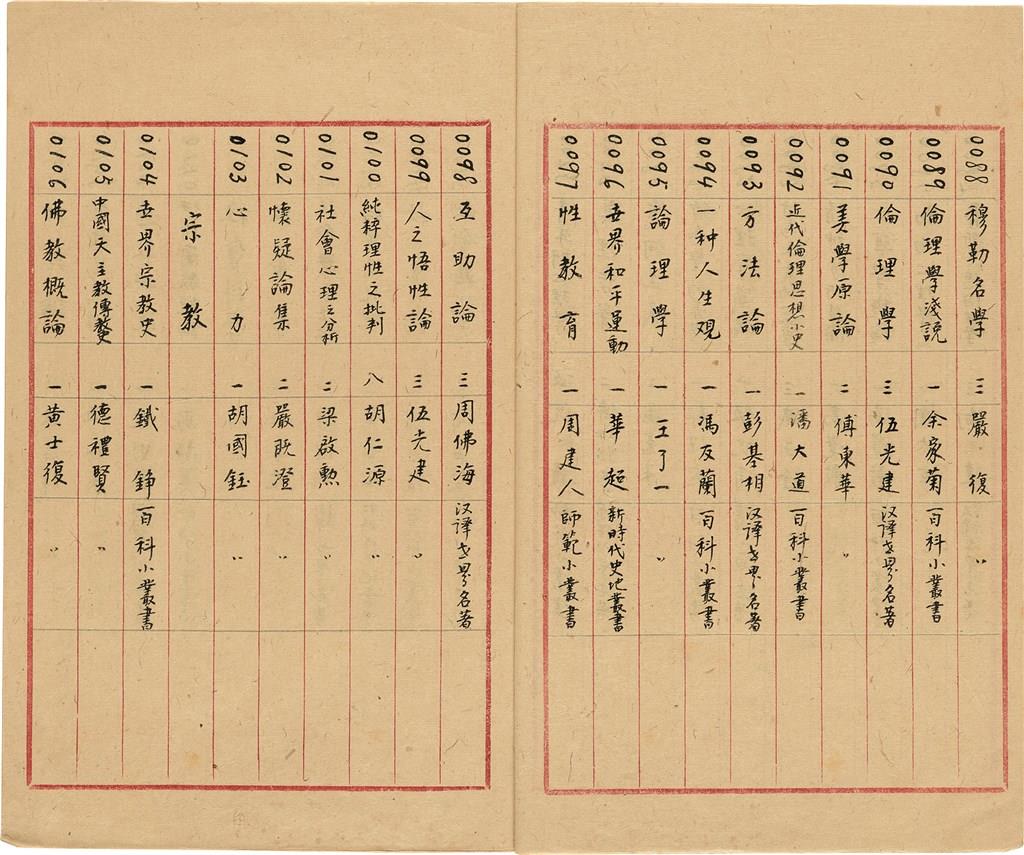 0088 穆勒名學 三 嚴復 〃
0089 倫理學淺説 一 余家菊 百科小叢書
0090 倫理學 三 伍光建 汉译世界名著
0091 美學原論 二 傅東華 〃
0092 近代倫理思想小史 一 潘大道 百科小叢書
0093 方法論 一 彭基相 汉译世界名著
0094 一种人生观 一 馮友蘭 百科小叢書
0095 論理學 一 王了一 〃
0096 世界和平運動 一 華超 新時代史地叢書
0097 性教育 一 周建人 師範小叢書
0098 互助論 三 周佛海 汉译世界名著
0099 人之悟性論 三 伍光建 〃
0100 純粹理性之批判 八 胡仁源 〃
0101 社會心理之分析 二 梁啟勲 〃
0102 懷疑論集 二 嚴既澄 〃
0103 心力 一 胡國鈺 〃
宗教
0104 世界宗教史 一 鐵錚 百科小叢書
0105 中國天主教傳教史 一 德禮賢 〃
0106 佛教概論 一 黃士復 〃